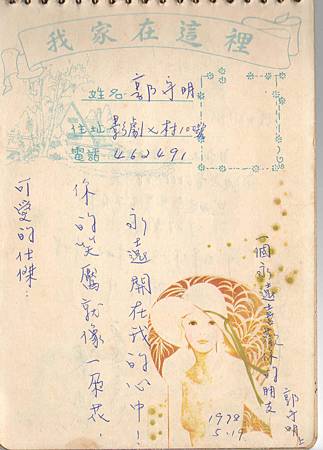 我家在這裡
姓名 郭守明
住址 影劇×村10號
電話 462491
可愛的仕傑：
你的笑靨就像一朵花，
永遠開在我的心中！
一個永遠喜歡你的朋友
郭守明上
1978
5.19